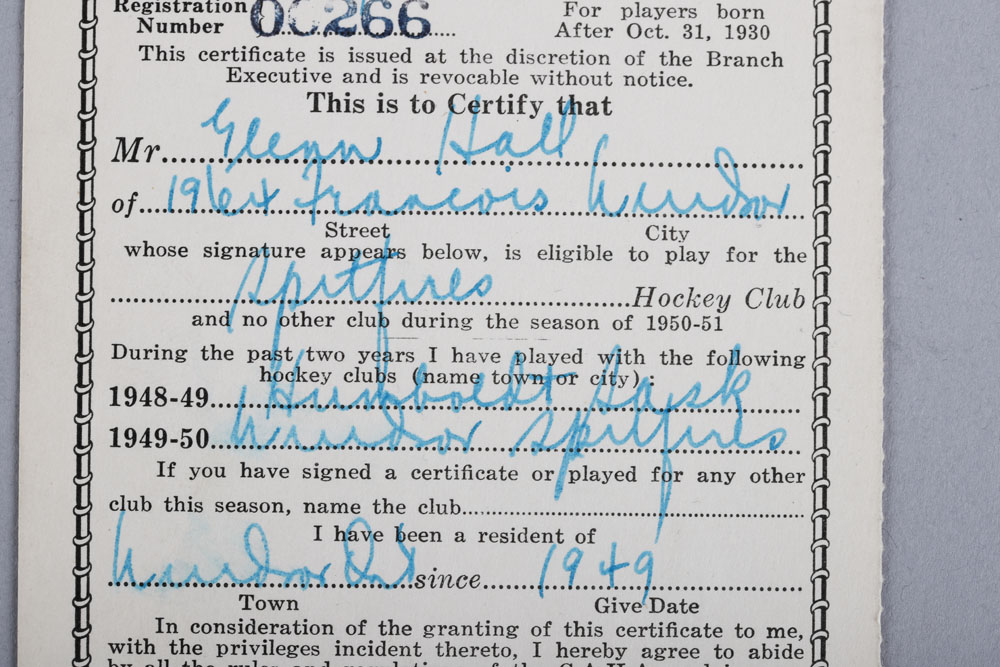 Registration For players born
Number OC266 After Oct. 31, 1930
This certificate is issued at the discretion of the Branch
Executive and is revocable without notice.
This is to Certify that
Mr. Glenn Hall
of 1964 Francois Windsor
Street City
whose signature appears below, is eligible to play for the
Spitfires Hockey Club
and no other club during the season of 1950-51
During the past two years I have played with the following
hockey clubs (name town or city):
1948-49 Humboldt Sask
1949-50 Windsor Spitfires
If you have signed a certificate or played for any other
club this season, name the club
I have been a resident of
Windsor Ont since 1949
Town Give Date
In consideration of the granting of this certificate to me,
with the privileges incident thereto, I hereby agree to abide
by all the rules and